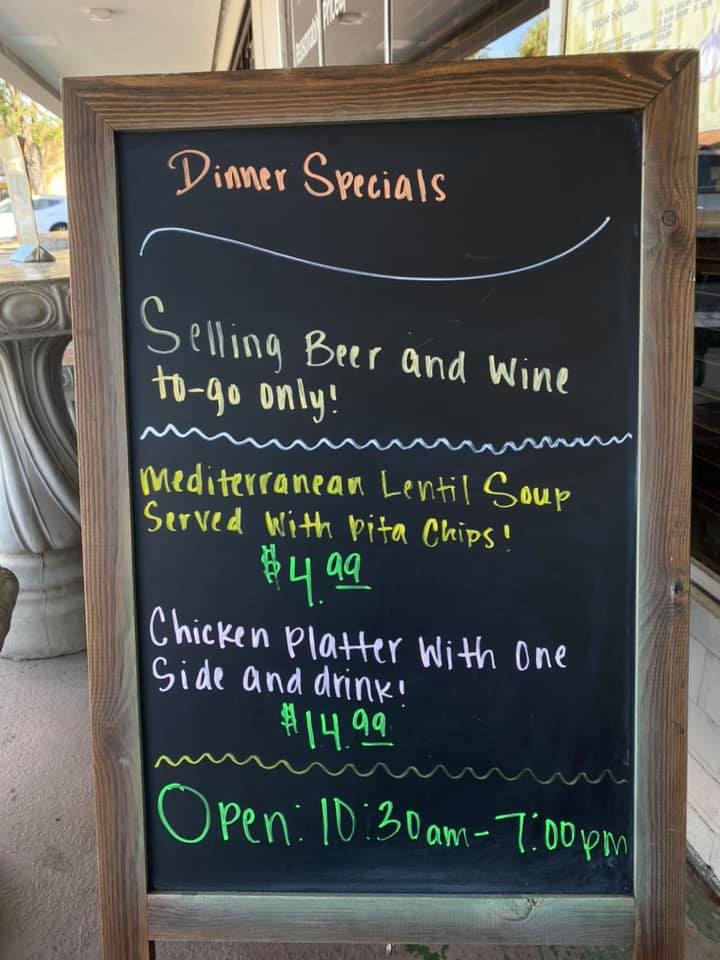 Dinner Specials
Selling Beer and Wine
to-go only!
Mediterranean Lentil Soup
Served With Pita Chips!
$4.99
Chicken Platter With One
Side and drink!
$14.99
Open: 10:30am-7:00pm